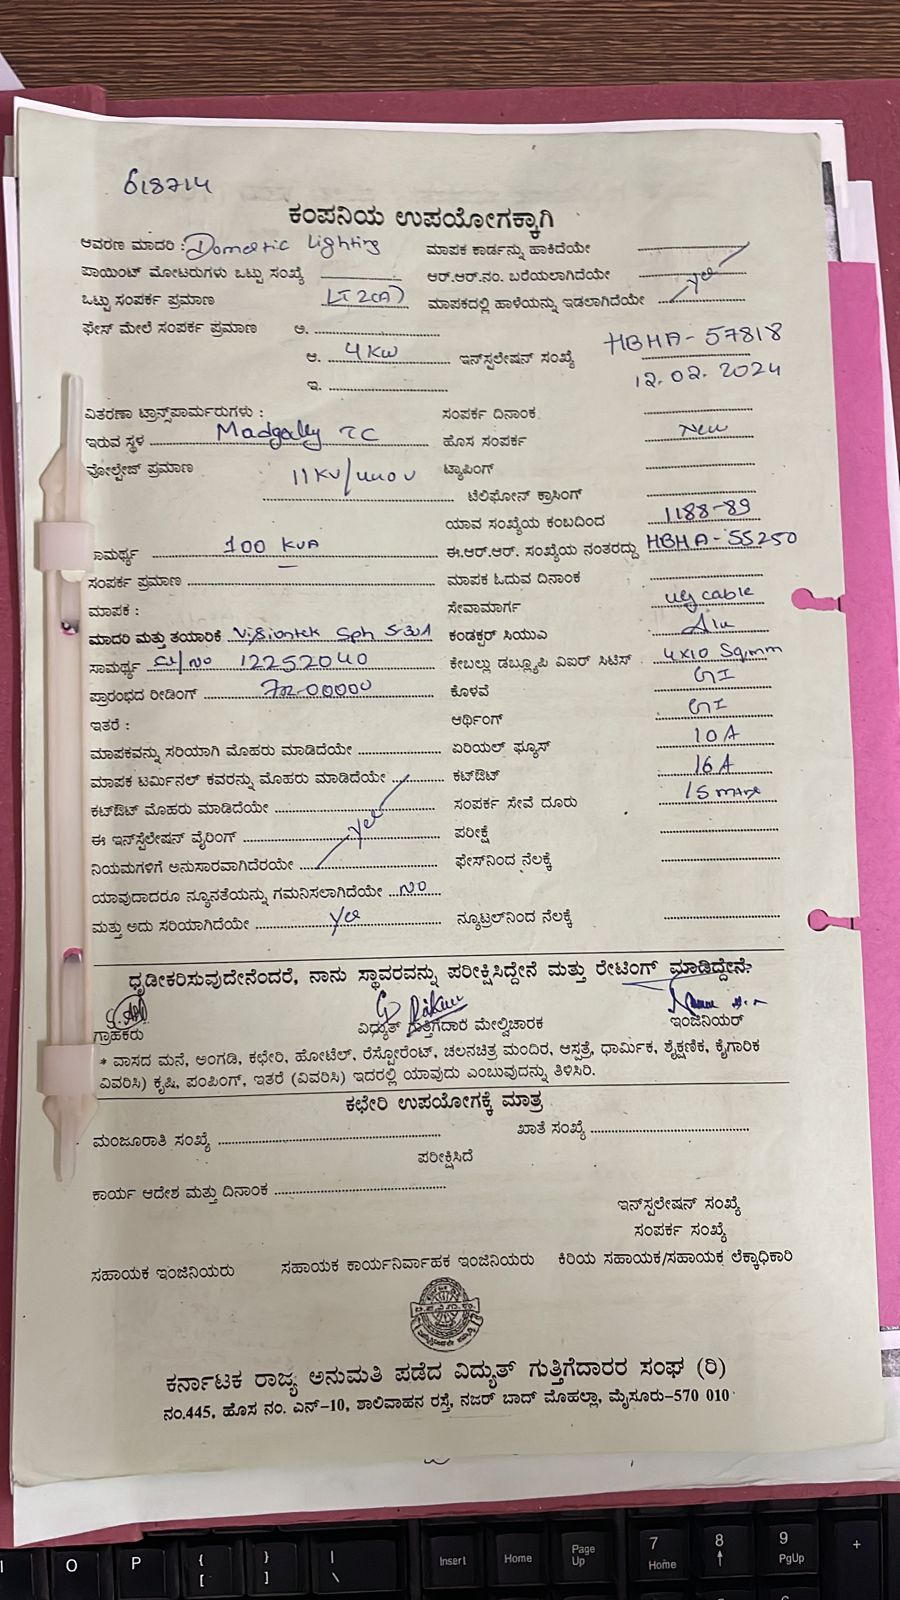 618714
ಕಂಪನಿಯ ಉಪಯೋಗಕ್ಕಾಗಿ
ಆವರಣ ಮಾದರಿ : Domestic Lighting ಮಾಪಕ ಕಾರ್ಡನ್ನು ಹಾಕಿದೆಯೇ
ಪಾಯಿಂಟ್ ಮೋಟರುಗಳು ಒಟ್ಟು ಸಂಖ್ಯೆ ಆರ್.ಆರ್.ನಂ. ಬರೆಯಲಾಗಿದೆಯೇ
ಒಟ್ಟು ಸಂಪರ್ಕ ಪ್ರಮಾಣ LT 2(A) ಮಾಪಕದಲ್ಲಿ ಹಾಳೆಯನ್ನು ಇಡಲಾಗಿದೆಯೇ yes
ಫೇಸ್ ಮೇಲೆ ಸಂಪರ್ಕ ಪ್ರಮಾಣ ಅ.
ಆ. 4 KW ಇನ್‌ಸ್ಪಲೇಷನ್ ಸಂಖ್ಯೆ HBHA-57818
ಇ. 12.02.2024
ವಿತರಣಾ ಟ್ರಾನ್ಸ್‌ಪಾರ್ಮರುಗಳು : ಸಂಪರ್ಕ ದಿನಾಂಕ
ಇರುವ ಸ್ಥಳ TC ಹೊಸ ಸಂಪರ್ಕ New
ವೋಲ್ಟೇಜ್ ಪ್ರಮಾಣ 11KV/440V ಟ್ಯಾಪಿಂಗ್
ಟೆಲಿಫೋನ್ ಕ್ರಾಸಿಂಗ್
ಯಾವ ಸಂಖ್ಯೆಯ ಕಂಬದಿಂದ 1188-89
ಸಾಮರ್ಥ್ಯ 100 KVA ಈ.ಆರ್.ಆರ್. ಸಂಖ್ಯೆಯ ನಂತರದ್ದು HBHA-55250
ಸಂಪರ್ಕ ಪ್ರಮಾಣ ಮಾಪಕ ಓದುವ ದಿನಾಂಕ
ಮಾಪಕ : ಸೇವಾಮಾರ್ಗ ug cable
ಮಾದರಿ ಮತ್ತು ತಯಾರಿಕೆ Visiontek Sph ಕಂಡಕ್ಟರ್ ಸಿಯುಎ Alu
ಸಾಮರ್ಥ್ಯ Sl/No 12252040 ಕೇಬಲ್ಲು ಡಬ್ಲ್ಯೂಪಿ ವಿಐರ್ ಸಿಟಿಸ್ 4x10 Sqmm
ಪ್ರಾರಂಭದ ರೀಡಿಂಗ್ ಕೊಳವೆ GI
ಇತರೆ : ಆರ್ಥಿಂಗ್ GI
ಮಾಪಕವನ್ನು ಸರಿಯಾಗಿ ಮೊಹರು ಮಾಡಿದೆಯೇ ಏರಿಯಲ್ ಫ್ಯೂಸ್ 10A
ಮಾಪಕ ಟರ್ಮಿನಲ್ ಕವರನ್ನು ಮೊಹರು ಮಾಡಿದೆಯೇ ಕಟ್‌ಔಟ್ 16A
ಕಟ್‌ಔಟ್ ಮೊಹರು ಮಾಡಿದೆಯೇ ಸಂಪರ್ಕ ಸೇವೆ ದೂರು 15
ಈ ಇನ್‌ಸ್ಪೆಲೇಷನ್ ವೈರಿಂಗ್ yes ಪರೀಕ್ಷೆ
ನಿಯಮಗಳಿಗೆ ಅನುಸಾರವಾಗಿದೆರಯೇ ಫೇಸ್‌ನಿಂದ ನೆಲಕ್ಕೆ
ಯಾವುದಾದರೂ ನ್ಯೂನತೆಯನ್ನು ಗಮನಿಸಲಾಗಿದೆಯೇ NO
ಮತ್ತು ಅದು ಸರಿಯಾಗಿದೆಯೇ yes ನ್ಯೂಟ್ರಲ್‌ನಿಂದ ನೆಲಕ್ಕೆ
ಧೃಡೀಕರಿಸುವುದೇನೆಂದರೆ, ನಾನು ಸ್ಥಾವರವನ್ನು ಪರೀಕ್ಷಿಸಿದ್ದೇನೆ ಮತ್ತು ರೇಟಿಂಗ್ ಮಾಡಿದ್ದೇನೆ?
ಗ್ರಾಹಕರು ವಿಧ್ಯುತ್ ಗುತ್ತಿಗೆದಾರ ಮೇಲ್ವಿಚಾರಕ ಇಂಜಿನಿಯರ್
* ವಾಸದ ಮನೆ, ಅಂಗಡಿ, ಕಛೇರಿ, ಹೋಟೆಲ್, ರೆಸ್ಟೋರೆಂಟ್, ಚಲನಚಿತ್ರ ಮಂದಿರ, ಆಸ್ಪತ್ರೆ, ಧಾರ್ಮಿಕ, ಶೈಕ್ಷಣಿಕ, ಕೈಗಾರಿಕ
ವಿವರಿಸಿ) ಕೃಷಿ, ಪಂಪಿಂಗ್, ಇತರೆ (ವಿವರಿಸಿ) ಇದರಲ್ಲಿ ಯಾವುದು ಎಂಬುವುದನ್ನು ತಿಳಿಸಿರಿ.
ಕಛೇರಿ ಉಪಯೋಗಕ್ಕೆ ಮಾತ್ರ
ಮಂಜೂರಾತಿ ಸಂಖ್ಯೆ ಖಾತೆ ಸಂಖ್ಯೆ
ಪರೀಕ್ಷಿಸಿದೆ
ಕಾರ್ಯ ಆದೇಶ ಮತ್ತು ದಿನಾಂಕ
ಇನ್‌ಸ್ಪಲೇಷನ್ ಸಂಖ್ಯೆ
ಸಂಪರ್ಕ ಸಂಖ್ಯೆ
ಸಹಾಯಕ ಇಂಜಿನಿಯರು ಸಹಾಯಕ ಕಾರ್ಯನಿರ್ವಾಹಕ ಇಂಜಿನಿಯರು ಕಿರಿಯ ಸಹಾಯಕ/ಸಹಾಯಕ ಲೆಕ್ಕಾಧಿಕಾರಿ
ಕರ್ನಾಟಕ ರಾಜ್ಯ ಅನುಮತಿ ಪಡೆದ ವಿದ್ಯುತ್ ಗುತ್ತಿಗೆದಾರರ ಸಂಘ (ರಿ)
ನಂ.445, ಹೊಸ ನಂ. ಎನ್-10, ಶಾಲಿವಾಹನ ರಸ್ತೆ, ನಜರ್ ಬಾದ್ ಮೊಹಲ್ಲಾ, ಮೈಸೂರು-570 010
O P { [ } ] | \ Insert Home Page Up 7 Home 8 9 PgUp +